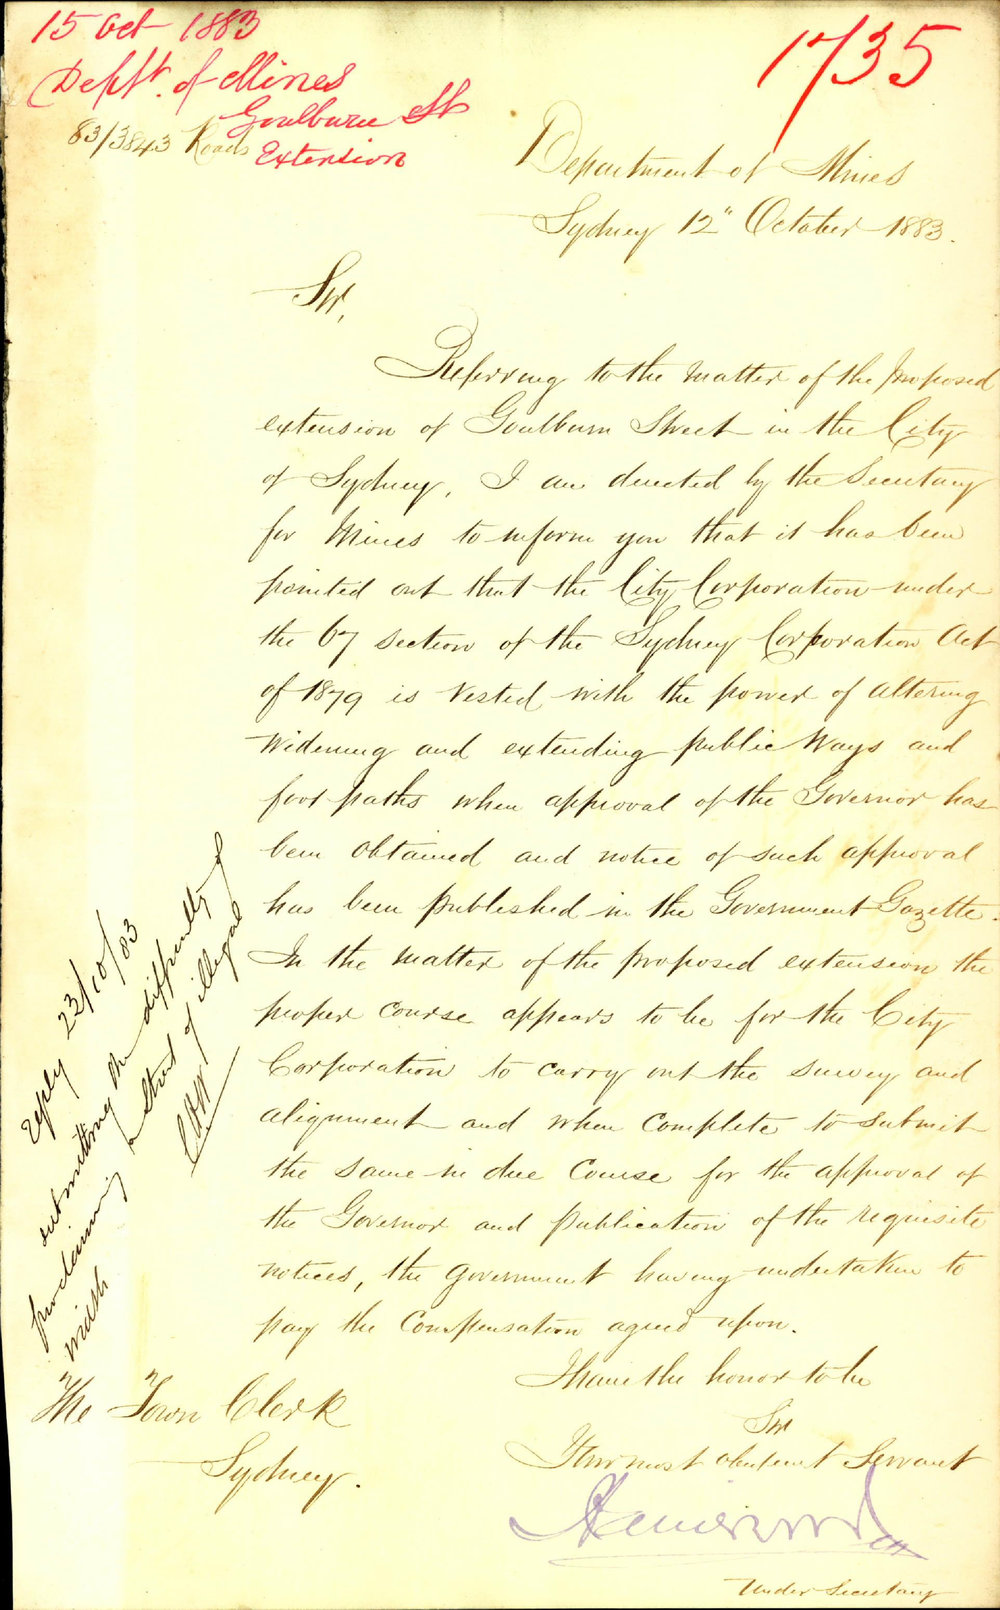 15 Oct 1883
Deptt. of Mines
Goulburn St
Extension
1735
83/3843 Roads
Department of Mines
Sydney 12" October 1883.
Sir,
Referring to the matter of the proposed
extension of Goulburn Street in the City
of Sydney, I am directed by the Secretary
for Mines to inform you that it has been
pointed out that the City Corporation under
the 67 section of the Sydney Corporation Act
of 1879 is vested with the power of altering
widening and extending public ways and
foot paths when approval of the Governor has
been obtained and notice of such approval
has been published in the Government Gazette.
In the matter of the proposed extension the
proper course appears to be for the City
Corporation to carry out the survey and
alignment and when complete to submit
the same in due course for the approval of
the Governor and publication of the requisite
notices, the Government having undertaken to
pay the Compensation agreed upon.
I have the honor to be
Sir
Your most obedient Servant
Under Secretary
The Town Clerk
Sydney.
reply 23/10/83
submitting the difficulty of
proclaiming a street of illegal
width